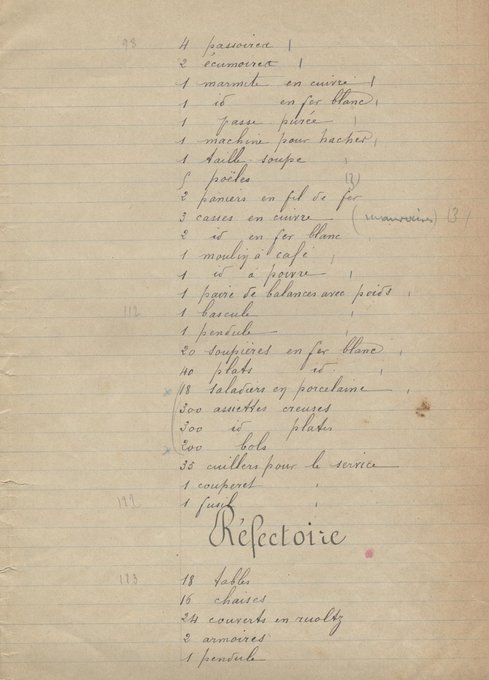 98 4 passoires |
2 écumoires |
1 marmite en cuivre |
1 id en fer blanc |
1 passe purée |
1 machine pour hacher |
1 taille soupe |
5 poëles (3)
2 paniers en fil de fer
3 casses en cuivre (mauvaises) (3)
2 id en fer blanc
1 moulin à café |
1 id à poivre |
1 paire de balances avec poids |
112 1 bascule |
1 pendule |
20 soupières en fer blanc |
40 plats id |
18 saladiers en porcelaine |
300 assettes creuses
300 id plates
200 bols
35 cuillers pour le service
1 couperet |
122 1 fusil |
Réfectoire
123 18 tables
16 chaises
24 couverts en ruoltz
2 armoires
1 pendule